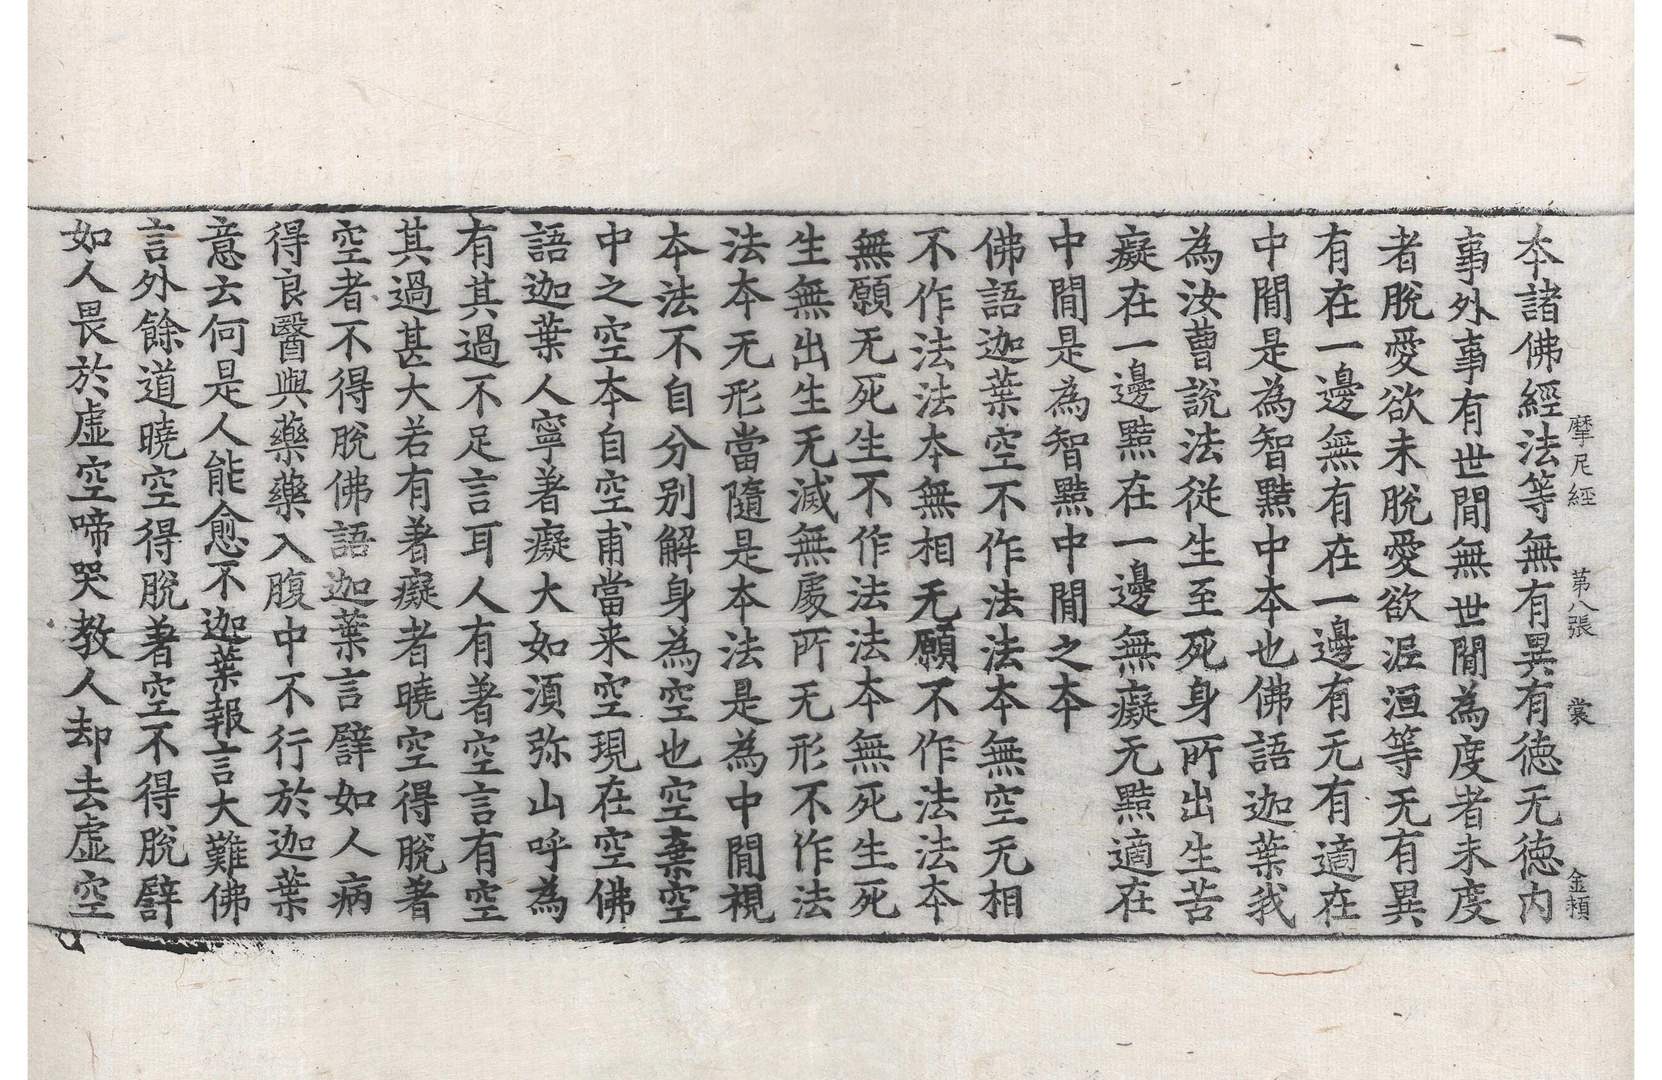 摩尼經 第八張 裳 金頛
本諸佛經法等無有異有德无德內
事外事有世間無世間為度者未度
者脫愛欲未脫愛欲泥洹等无有異
有在一邊無有在一邊有无有適在
中間是為智黠中本也佛語迦葉我
為汝曹說法從生至死身所出生苦
癡在一邊黠在一邊無癡无黠適在
中間是為智黠中間之本
佛語迦葉空不作法法本無空无相
不作法法本無相无願不作法法本
無願无死生不作法法本無死生死
生無出生无滅無處所无形不作法
法本无形當隨是本法是為中間視
本法不自分別解身為空也空棄空
中之空本自空甫當来空現在空佛
語迦葉人寧著癡大如湏弥山呼為
有其過不足言耳人有著空言有空
其過甚大若有著癡者曉空得脫著
空者不得脫佛語迦葉言譬如人病
得良醫與藥藥入腹中不行於迦葉
意云何是人能愈不迦葉報言大難佛
言外餘道曉空得脫著空不得脫譬
如人畏於虛空啼哭教人却去虛空